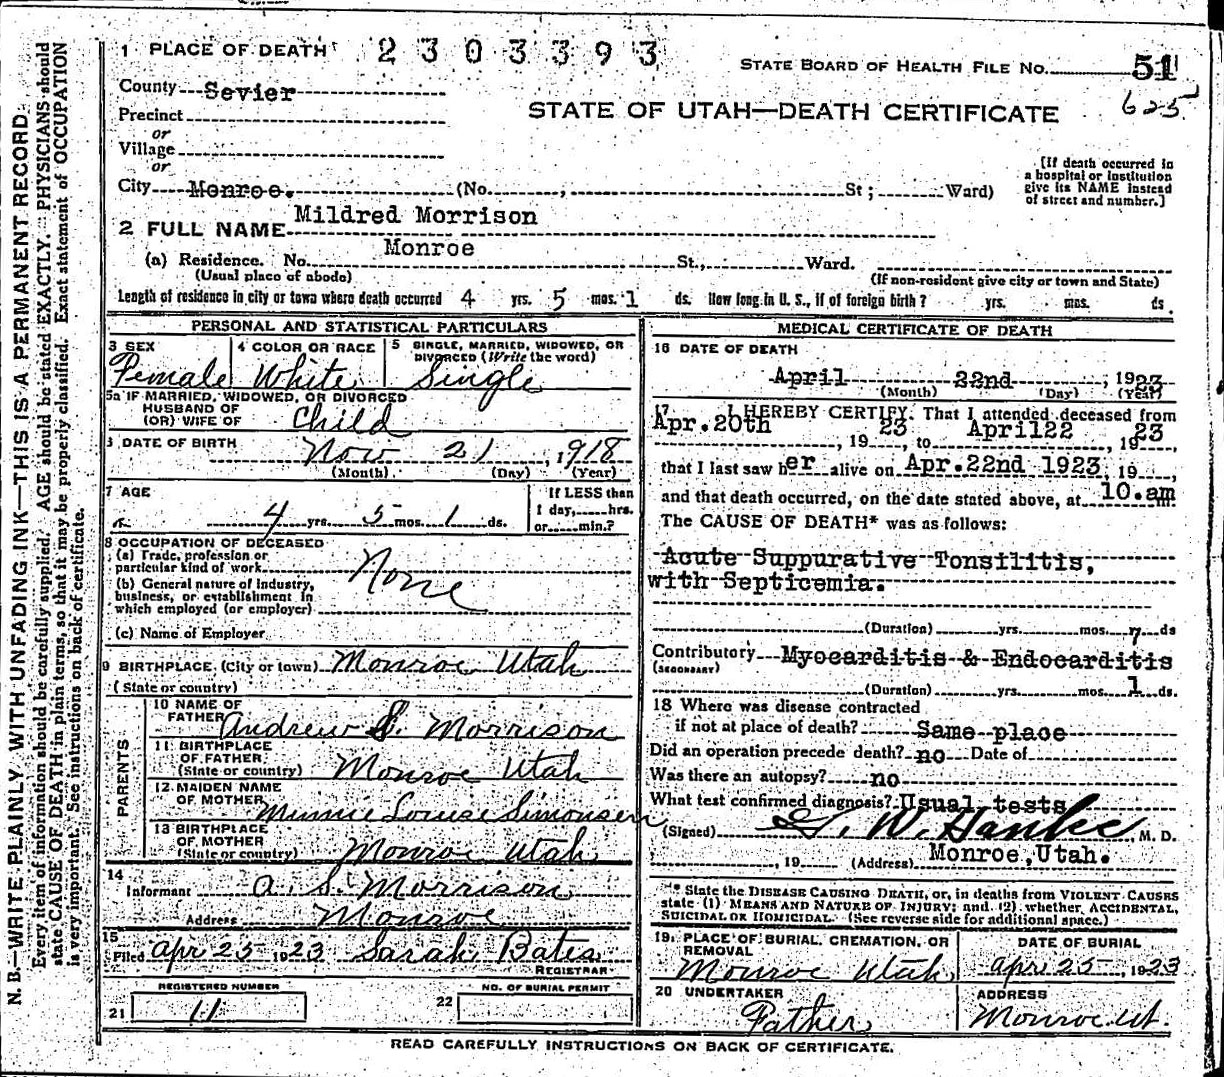 1 PLACE OF DEATH 2303393
STATE BOARD OF HEALTH FILE No. 51
County Sevier
625
Precinct
STATE OF UTAH—DEATH CERTIFICATE
or
Village
or
City Monroe. (No. , St; Ward)
[If death occurred in
a hospital or institution
give its NAME instead
of street and number.]
2 FULL NAME Mildred Morrison
(a) Residence. No. Monroe St., Ward.
(Usual place of abode) (If non-resident give city or town and State)
Length of residence in city or town where death occurred 4 yrs. 5 mos. 1 ds. How long in U. S., if of foreign birth? yrs. mos. ds.
PERSONAL AND STATISTICAL PARTICULARS
3 SEX
Female
4 COLOR OR RACE
White
5 SINGLE, MARRIED, WIDOWED, OR
DIVORCED (Write the word)
Single
5a IF MARRIED, WIDOWED, OR DIVORCED
HUSBAND OF
(OR) WIFE OF Child
6 DATE OF BIRTH
Nov 21, 1918
(Month) (Day) (Year)
7 AGE
4 yrs. 5 mos. 1 ds.
If LESS than
1 day, hrs.
or min.?
8 OCCUPATION OF DECEASED
(a) Trade, profession or
particular kind of work None
(b) General nature of Industry,
business, or establishment in
which employed (or employer)
(c) Name of Employer
9 BIRTHPLACE (City or town) Monroe Utah
(State or country)
PARENTS
10 NAME OF
FATHER Andrew S. Morrison
11 BIRTHPLACE
OF FATHER
(State or country) Monroe Utah
12 MAIDEN NAME
OF MOTHER Minnie Louise Simonsen
13 BIRTHPLACE
OF MOTHER
(State or country) Monroe Utah
14
Informant A. S. Morrison
Address Monroe
15
Filed Apr 25 1923 Sarah Bates
REGISTRAR
REGISTERED NUMBER
21 11
NO. OF BURIAL PERMIT
22
MEDICAL CERTIFICATE OF DEATH
16 DATE OF DEATH
April 22nd, 1923
(Month) (Day) (Year)
17 I HEREBY CERTIFY. That I attended deceased from
Apr. 20th, 1923, to April 22, 1923
that I last saw her alive on Apr. 22nd 1923, 19
and that death occurred, on the date stated above, at 10. am
The CAUSE OF DEATH* was as follows:
Acute Suppurative Tonsilitis,
with Septicemia.
(Duration) yrs. mos. 7 ds
Contributory Myocarditis & Endocarditis
(SECONDARY)
(Duration) yrs. mos. 1 ds.
18 Where was disease contracted
if not at place of death? Same place
Did an operation precede death? no Date of
Was there an autopsy? no
What test confirmed diagnosis? Usual tests
(Signed) G. W. Hanke, M. D.
, 19 (Address) Monroe, Utah.
* State the DISEASE CAUSING DEATH, or, in deaths from VIOLENT CAUSES
state (1) MEANS AND NATURE OF INJURY; and (2) whether ACCIDENTAL,
SUICIDAL OR HOMICIDAL. (See reverse side for additional space.)
19 PLACE OF BURIAL, CREMATION, OR
REMOVAL
Monroe Utah
DATE OF BURIAL
Apr 25, 1923
20 UNDERTAKER
Father
ADDRESS
Monroe Ut.
READ CAREFULLY INSTRUCTIONS ON BACK OF CERTIFICATE.
N. B.—WRITE PLAINLY WITH UNFADING INK—THIS IS A PERMANENT RECORD.
Every item of information should be carefully supplied. AGE should be stated EXACTLY. PHYSICIANS should
state CAUSE OF DEATH in plain terms, so that it may be properly classified. Exact statement of OCCUPATION
is very important. See instructions on back of certificate.